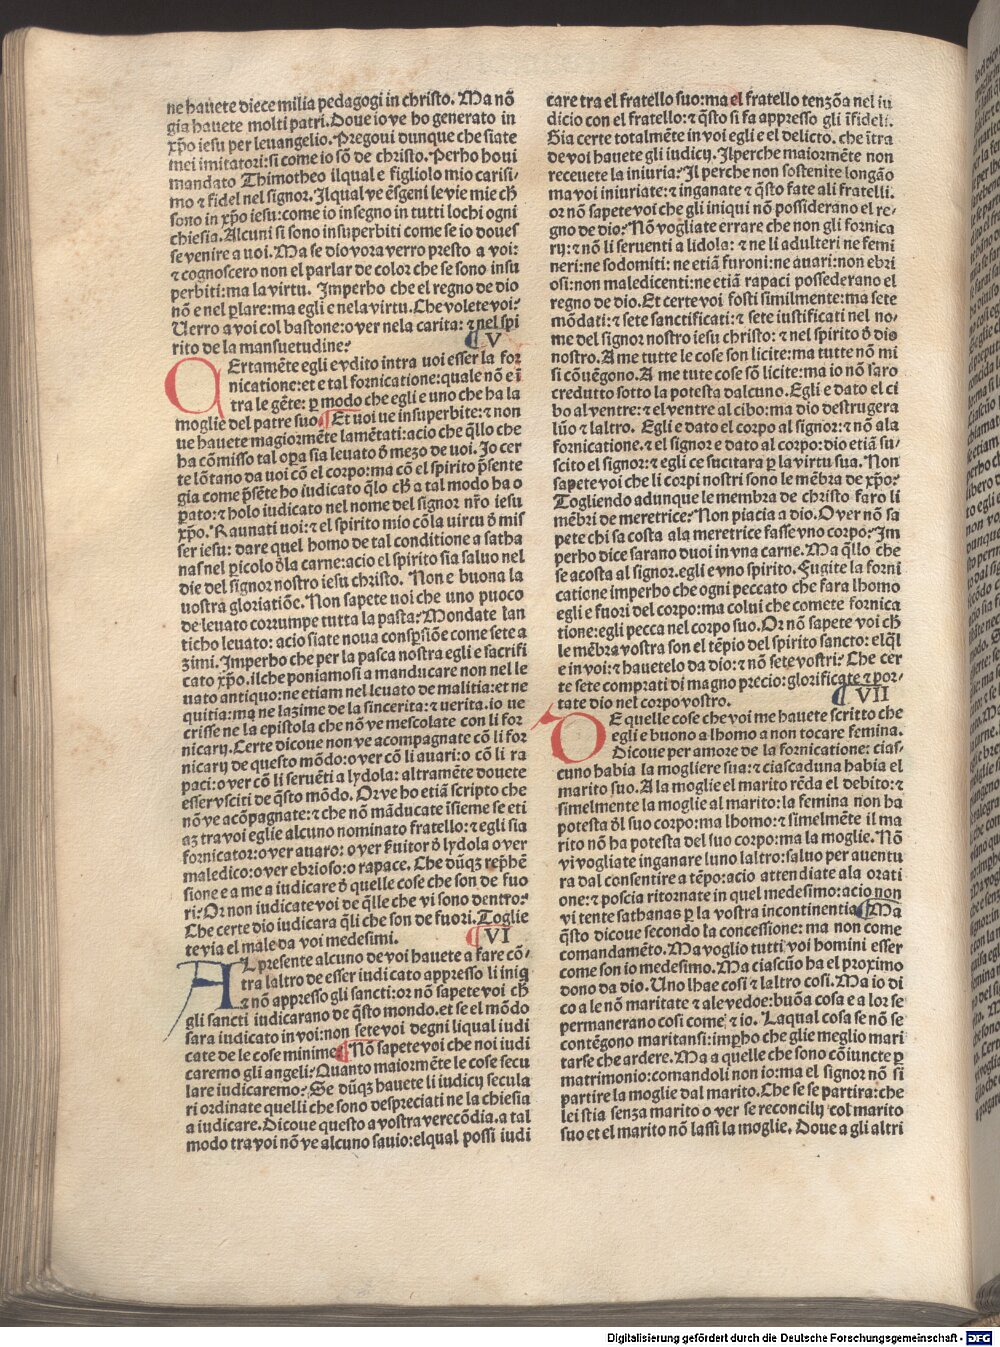 ne hauete diece milia pedagogi in christo. Ma nō
gia hauete molti patri. Doue io ve ho generato in
xp̄o iesu per leuangelio. Pregoui dunque che siate
mei imitatori: si come io sō de christo. Perho houi
mandato Thimotheo ilqual e figliolo mio carisi-
mo ⁊ fidel nel signor. Ilqual ve ēsgeni le vie mie ch̄
sono in xp̄o iesu: come io insegno in tutti lochi ogni
chiesia. Alcuni si sono insuperbiti come se io doues
se venire a uoi. Ma se dio vora verro presto a voi:
⁊ cognoscero non el parlar de color che se sono insu
perbiti: ma la virtu. Imperho che el regno de dio
nō e nel ꝑlare: ma egli e nela virtu. Che volete voi?
Uerro a voi col bastone: o ver nela carita: ⁊ nel spi
rito de la mansuetudine?
V
CErtamēte egli e vdito intra uoi esser la for
nicatione: et e tal fornicatione: quale nō e ī
tra le gēte: ꝑ modo che egli e uno che ha la
moglie del patre suo. Et uoi ue insuperbite: ⁊ non
ue hauete magiormēte lamētati: acio che q̄llo che
ha cōmisso tal oꝑa sia leuato d̄ mezo de uoi. Jo cer
te lōtano da uoi cō el corpo: ma cō el spirito p̄sente
gia come p̄sēte ho iudicato q̄lo ch̄ a tal modo ha o
ꝑato: ⁊ holo iudicato nel nome del signor nr̄o iesu
xp̄o. Raunati uoi: ⁊ el spirito mio cōla uirtu d̄ mis
ser iesu: dare quel homo de tal conditione a satha
nas nel ꝑicolo d̄la carne: acio el spirito sia saluo nel
die del signor nostro iesu christo. Non e buona la
uostra gloriatiōe. Non sapete uoi che uno puoco
de leuato corrumpe tutta la pasta? Mondate lan
ticho leuato: acio siate noua consp̄siōe come sete a
zimi. Imperho che per la pasca nostra egli e sacrifi
cato xp̄o. ilche poniamosi a manducare non nel le
uato antiquo: ne etiam nel leuato de malitia: et ne
quitia: ma ne lazime de la sincerita: ⁊ uerita. io ue
crisse ne la epistola che nō ve mescolate con li for
nicarij. Certe dicoue non ve acompagnate cō li for
nicarij de questo mōdo: o ver cō li auari: o cō li ra
paci: o ver cō li seruēti a lydola: altramēte douete
esser vsciti de q̄sto mōdo. Or ve ho etiā scripto che
nō ve acōpagnate: ⁊ che nō māducate īsieme se eti
aʒ tra voi egli e alcuno nominato fratello: ⁊ egli sia
fornicator: o ver auaro: o ver ẜuitor d̄ lydola o ver
maledico: o ver ebrioso: o rapace. Che dūqʒ rep̄hē
sione e a me a iudicare d̄ quelle cose che son de fuo
ri? Or non iudicate voi de q̄lle che vi sono dentro?
Che certe dio iudicara q̄li che son de fuori. Toglie
te via el male da voi medesimi.
VI
AL presente alcuno de voi hauete a fare cō-
tra laltro de esser iudicato appresso li iniq̄
⁊ nō appresso gli sancti: or nō sapete voi ch̄
gli sancti iudicarano de q̄sto mondo. et se el mōdo
sara iudicato in voi: non sete voi degni liqual iudi
cate de le cose minime? Nō sapete voi che noi iudi
caremo gli angeli? Quanto maiormēte le cose secu
lare iudicaremo? Se dūqʒ hauete li iudicij secula
ri ordinate quelli che sono despreciati ne la chiesia
a iudicare. Dicoue questo a vostra verecōdia. a tal
modo tra voi nō ve alcuno sauio: elqual possi iudi
care tra el fratello suo: ma el fratello tenzōa nel iu
dicio con el fratello: ⁊ q̄sto si fa appresso gli īfideli.
Sia certe totalmēte in voi egli e el delicto. che ītra
de voi hauete gli iudicij. Ilperche maiormēte non
receuete la iniuria? Il perche non sostenite longāo
ma voi iniuriate: ⁊ inganate ⁊ q̄sto fate ali fratelli.
or nō sapete voi che gli iniqui nō possiderano el re-
gno de dio? Nō vogliate errare che non gli fornica
rij: ⁊ nō li seruenti a lidola: ⁊ ne li adulteri ne femi
neri: ne sodomiti: ne etiā furoni: ne auari: non ebri
osi: non maledicenti: ne etiā rapaci possederano el
regno de dio. Et certe voi fosti similmente: ma sete
mōdati: ⁊ sete sanctificati: ⁊ sete iustificati nel no-
me del signor nostro iesu christo: ⁊ nel spirito d̄ dio
nostro. A me tutte le cose son licite: ma tutte nō mi
si cōuēgono. A me tute cose sō licite: ma io nō saro
credutto sotto la potesta dalcuno. Egli e dato el ci
bo al ventre: ⁊ el ventre al cibo: ma dio destrugera
lūo ⁊ laltro. Egli e dato el corpo al signor: ⁊ nō ala
fornicatione. ⁊ el signor e dato al corpo: dio etiā su-
scito el signor: ⁊ egli ce sucitara ꝑ la virtu sua. Non
sapete voi che li corpi nostri sono le mēbra de xp̄o?
Togliendo adunque le membra de christo faro li
mēbri de meretrice? Non piacia a dio. O ver nō sa
pete chi sa costa ala meretrice fasse vno corpo? Im
perho dice sarano duoi in vna carne. Ma q̄llo che
se acosta al signor. egli e vno spirito. Fugite la forni
catione imperho che ogni peccato che fara lhomo
egli e fuori del corpo: ma colui che comete fornica
tione: egli pecca nel corpo suo. Or nō sapete voi ch̄
le mēbra vostra son el tēpio del spirito sancto: elq̄l
e in voi: ⁊ hauetelo da dio: ⁊ nō sete vostri? Che cer
te sete comprati di magno precio: glorificate ⁊ por-
tate dio nel corpo vostro.
VII
DE quelle cose che voi me hauete scritto che
egli e buono a lhomo a non tocare femina.
Dicoue per amore de la fornicatione: cias-
cuno habia la mogliere sua: ⁊ ciascaduna habia el
marito suo. A la moglie el marito rēda el debito: ⁊
similmente la moglie al marito: la femina non ha
potesta d̄l suo corpo: ma lhomo: ⁊ similmēte il ma
rito nō ha potesta del suo corpo: ma la moglie. Nō
vi vogliate inganare luno laltro: saluo per auentu
ra dal consentire a tēpo: acio attendiate ala orati
one: ⁊ poscia ritornate in quel medesimo: acio non
vi tente sathanas ꝑ la vostra incontinentia. Ma
q̄sto dicoue secondo la concessione: ma non come
comandamēto. Ma voglio tutti voi homini esser
come son io medesimo. Ma ciascūo ha el proximo
dono da dio. Uno lhae cosi ⁊ laltro cosi. Ma io di
co a le nō maritate ⁊ ale vedoe: buōa cosa e a lor se
permanerano cosi come ⁊ io. Laqual cosa se nō se
contēgono maritansi: imꝑho che glie meglio mari
tarse che ardere. Ma a quelle che sono cōiuncte ꝑ
matrimonio: comandoli non io: ma el signor nō si
partire la moglie dal marito. Che se se partira: che
lei stia senza marito o ver se reconcilij col marito
suo et el marito nō lassi la moglie. Doue a gli altri
Digitalisierung gefördert durch die Deutsche Forschungsgemeinschaft - DFG